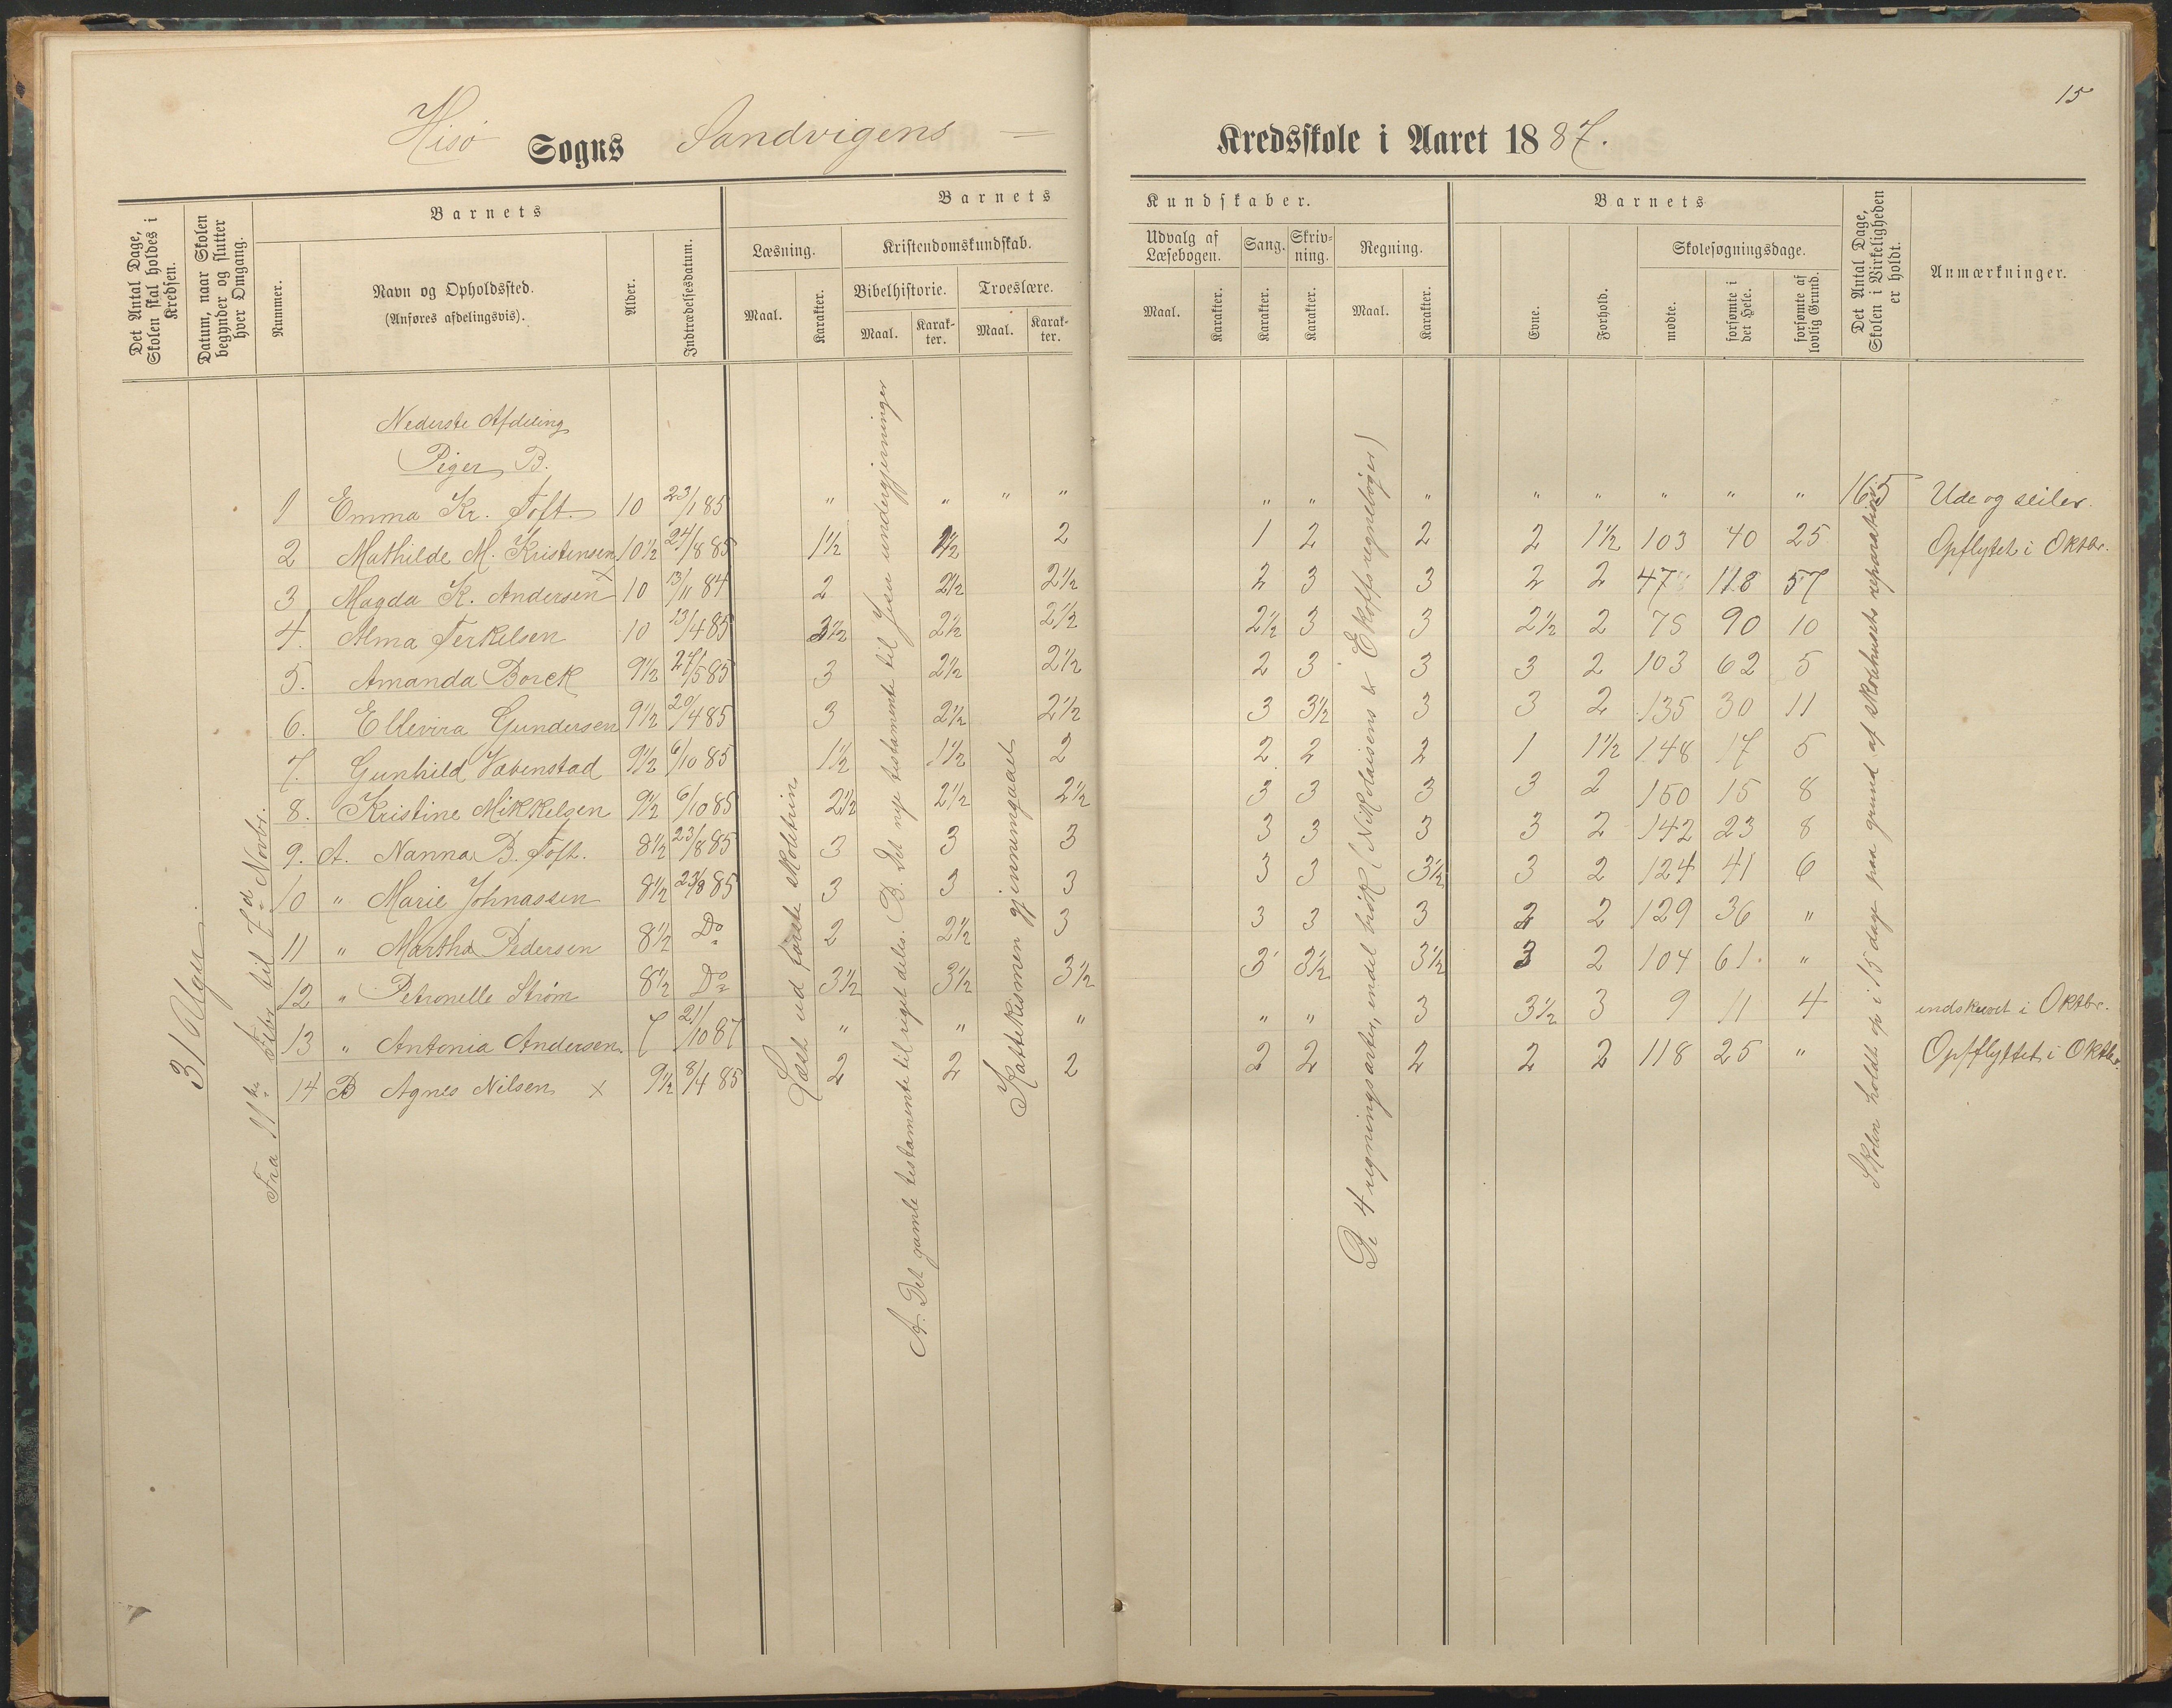 15
Hisö Sogns Sandvigens = Kredsskole i Aaret 1887.
Det Antal Dage, Skolen skal holdes i Kredsen.
Datum, naar Skolen begynder og slutter hver Omgang.
Barnets
Nummer.
Navn og Opholdssted.
(Anføres afdelingsvis).
Alder.
Indtrædelsesdatum.
Barnets Kundskaber.
Læsning.
Maal. Karakter.
Kristendomskundskab.
Bibelhistorie. Troeslære.
Maal. Karakter. Maal. Karakter.
Udvalg af Læsebogen.
Maal. Karakter.
Sang.
Karakter.
Skrivning.
Karakter.
Regning.
Maal. Karakter.
Barnets
Evne. Forhold.
Skolesøgningsdage.
mødte. forsømte i det Hele. forsømte af lovlig Grund.
Det Antal Dage, Skolen i Virkeligheden er holdt.
Anmærkninger.
Nederste Afdeling
Piger B.
1 Emma Kr. Toft. 10 23/1 85 " " " " " " " " " " " " 165 Ude og seiler.
2 Mathilde M. Kristensen 10½ 24/8 85 1½ 1½ 2 1 2 2 2 1½ 103 40 25 Opflytet i Oktbr.
3 Magda K. Andersen x 10 13/11 84 2 2½ 2½ 2 3 3 2 2 47 118 57
4. Alma Terkelsen 10 13/4 85 3½ 2½ 2½ 2½ 3 3 2½ 2 75 90 10
5. Amanda Borck 9½ 27/5 85 3 2½ 2½ 2 3 3 3 2 103 62 5
6. Ellevira Gundersen 9½ 20/4 85 3 2½ 2½ 3 3½ 3 3 2 135 30 11
7. Gunhild Vabenstad 9½ 6/10 85 1½ 1½ 2 2 2 2 1 1½ 148 17 5
8. Kristine Mikkelsen 9½ 6/10 85 2½ 2½ 2½ 3 3 3 3 2 150 15 8
9. A. Nanna B. Toft. 8½ 23/8 85 3 3 3 3 3 3 3 2 142 23 8
10 " Marie Johnassen 8½ 23/8 85 3 3 3 3 3 3½ 3 2 124 41 6
11 " Martha Pedersen 8½ Do 2 2½ 3 3 3 3 2 2 129 36 "
12 " Petronelle Strøm 8½ Do 3½ 3½ 3½ 3 3½ 3½ 3 2 104 61 "
13 " Antonia Andersen. 7 21/10 87 " " " " " 3 3½ 3 9 11 4 indskrevet i Oktbr.
14 B Agnes Nilsen x 9½ 8/4 85 2 2 2 2 2 2 2 2 118 25 " Opfflyttet i Oktbr.
31 Uger
Fra 11te til 7de Novbr.
Læst ud første skoletrin
A. Det gamle testamente til riget deles. B. Det nye testamente til Jesu undergjerninger
Kattekismen gjennemgaaet
De 4 regningsarter, endel brøk (Nikolaisens & Ekoffs regnebøger)
Skolen holdt op i 15 dage paa grund af skolehusets reparation